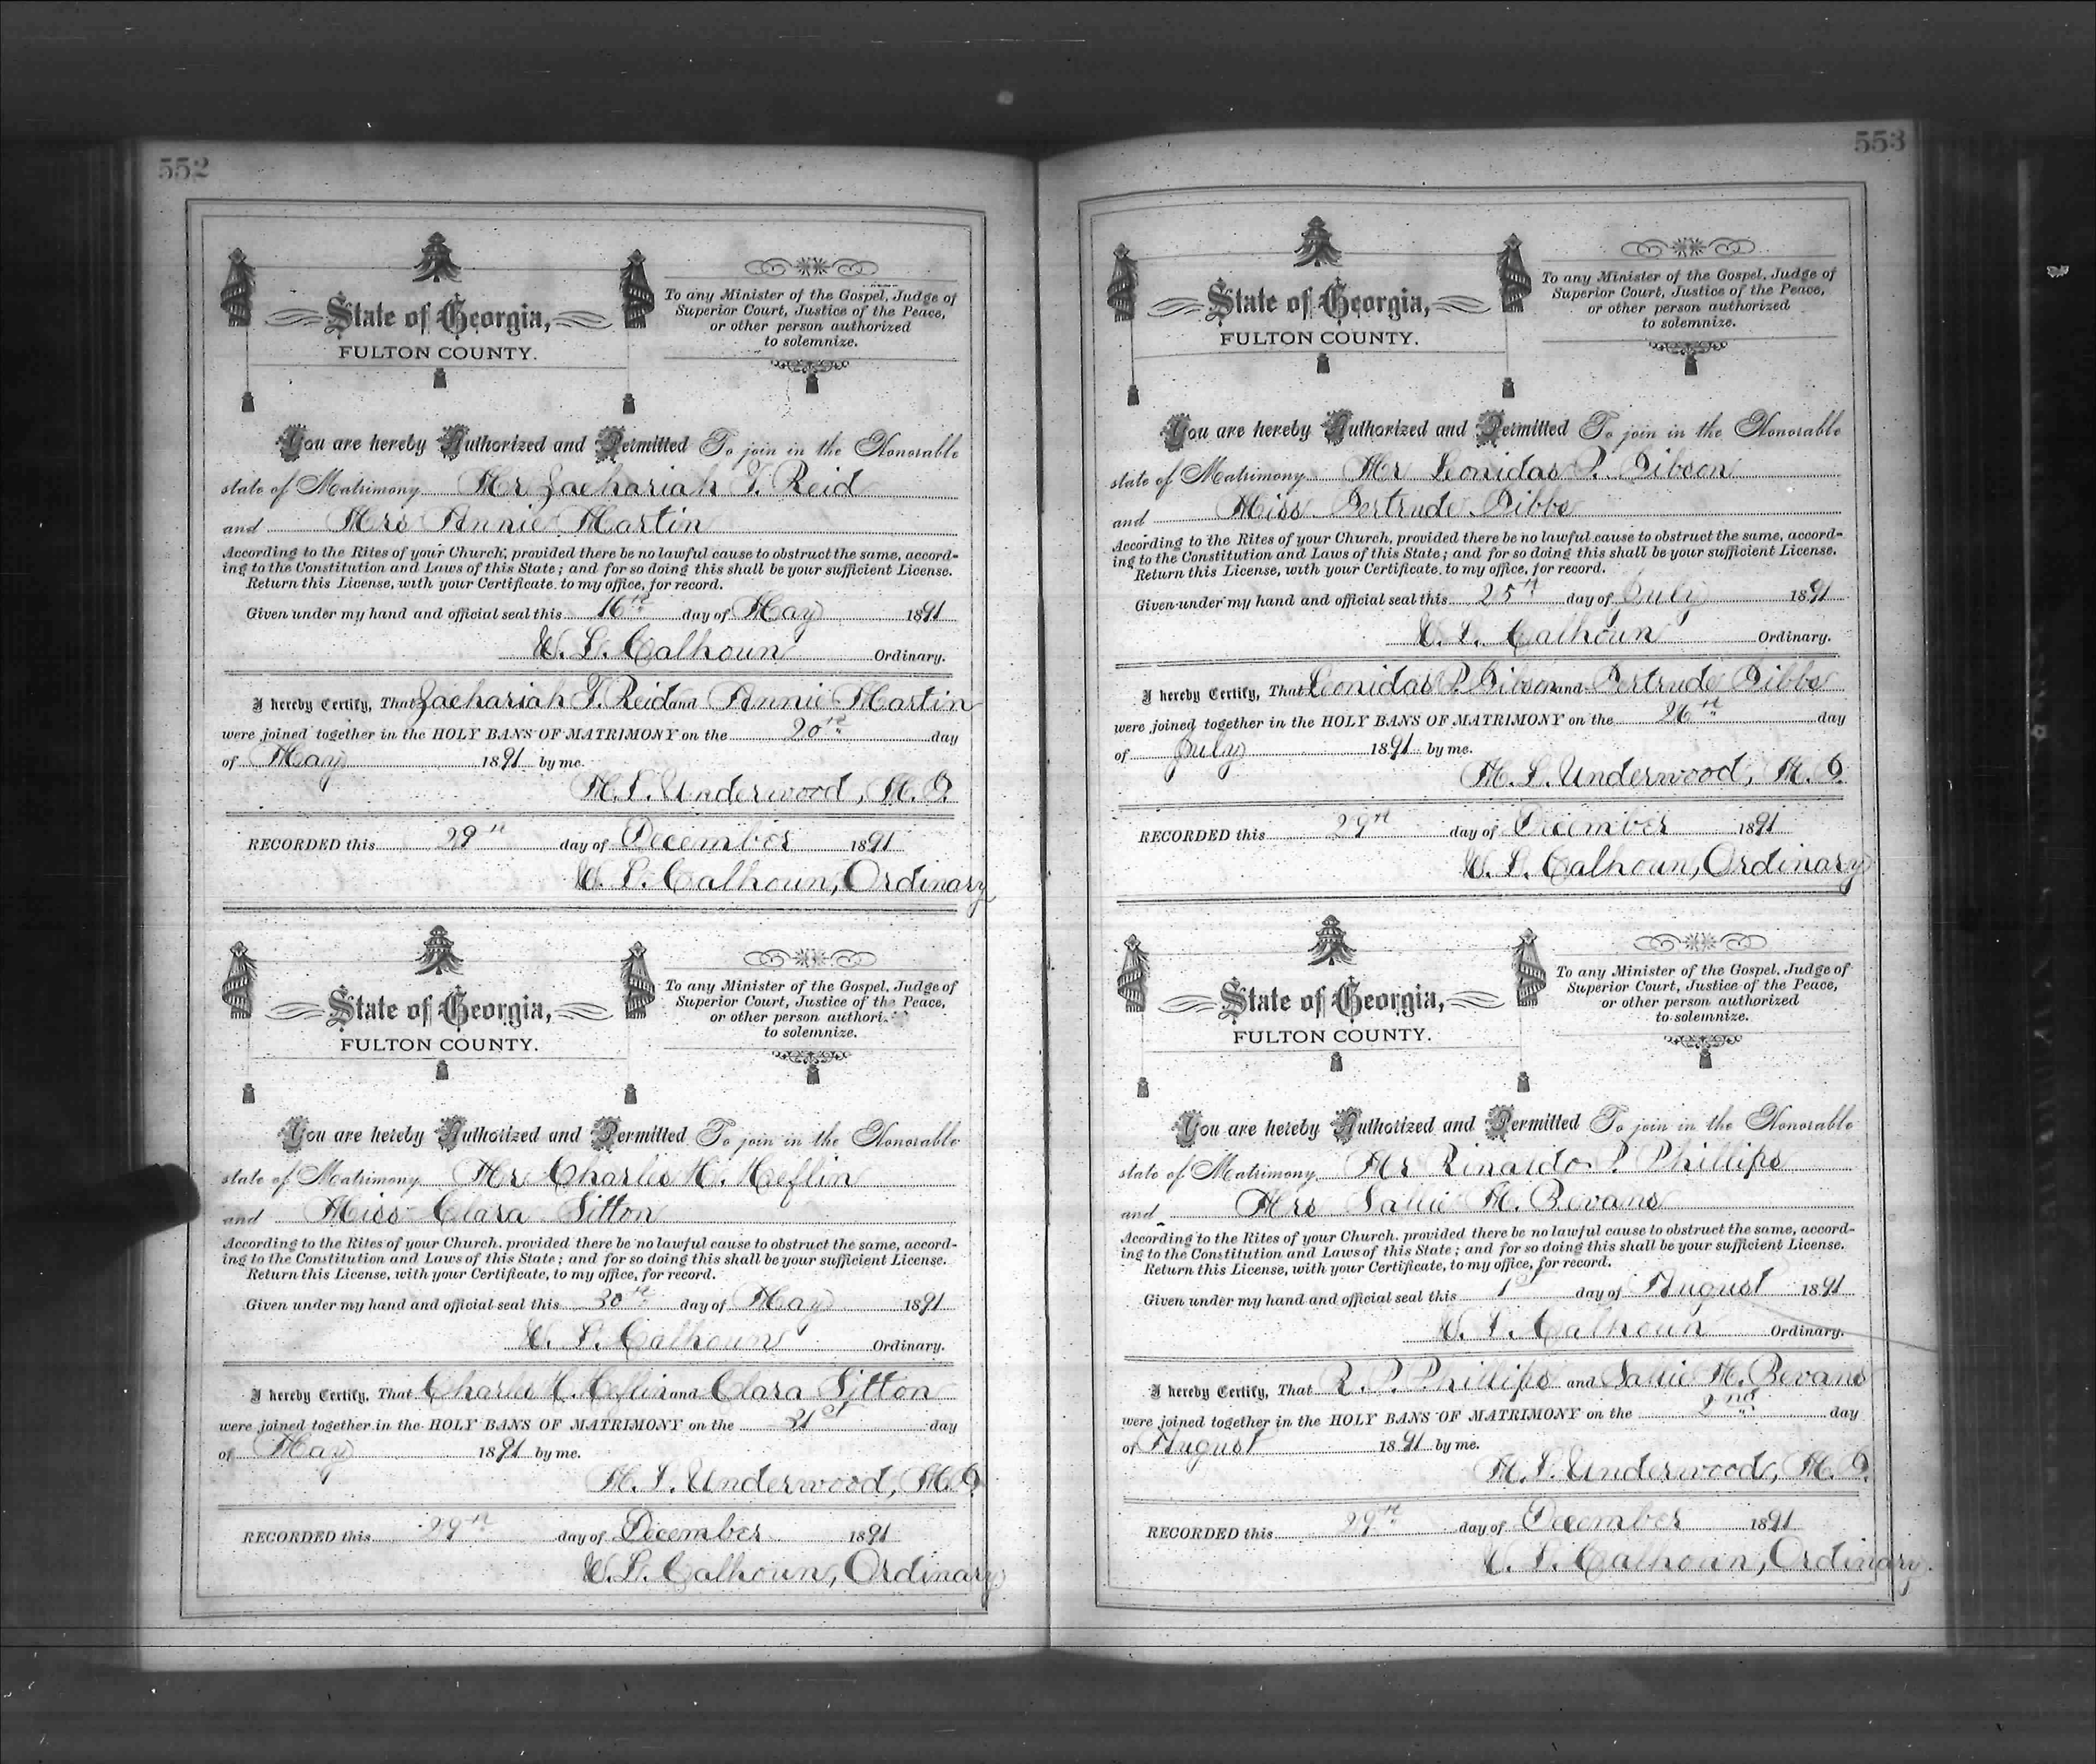 552
State of Georgia,
FULTON COUNTY.
To any Minister of the Gospel, Judge of
Superior Court, Justice of the Peace,
or other person authorized
to solemnize.
You are hereby Authorized and Permitted To join in the Honorable
state of Matrimony Mr Zachariah T. Reid
and Mrs Annie Martin
According to the Rites of your Church, provided there be no lawful cause to obstruct the same, accord-
ing to the Constitution and Laws of this State; and for so doing this shall be your sufficient License.
Return this License, with your Certificate, to my office, for record.
Given under my hand and official seal this 16th day of May 1891
W. L. Calhoun Ordinary.
I hereby Certify, That Zachariah T. Reid and Annie Martin
were joined together in the HOLY BANS OF MATRIMONY on the 20th day
of May 1891 by me.
M. L. Underwood, M. G.
RECORDED this 29th day of December 1891
W. L. Calhoun, Ordinary
State of Georgia,
FULTON COUNTY.
To any Minister of the Gospel, Judge of
Superior Court, Justice of the Peace,
or other person authori
to solemnize.
You are hereby Authorized and Permitted To join in the Honorable
state of Matrimony Mr Charles H. Heflin
and Miss Clara Sitton
According to the Rites of your Church, provided there be no lawful cause to obstruct the same, accord-
ing to the Constitution and Laws of this State; and for so doing this shall be your sufficient License.
Return this License, with your Certificate, to my office, for record.
Given under my hand and official seal this 30th day of May 1891
W. L. Calhoun Ordinary.
I hereby Certify, That Charles H. Heflin and Clara Sitton
were joined together in the HOLY BANS OF MATRIMONY on the 31st day
of May 1891 by me.
M. L. Underwood, M. G.
RECORDED this 29th day of December 1891
W. L. Calhoun, Ordinary
553
State of Georgia,
FULTON COUNTY.
To any Minister of the Gospel, Judge of
Superior Court, Justice of the Peace,
or other person authorized
to solemnize.
You are hereby Authorized and Permitted To join in the Honorable
state of Matrimony Mr Leonidas P. Gibson
and Miss Gertrude Gibbs
According to the Rites of your Church, provided there be no lawful cause to obstruct the same, accord-
ing to the Constitution and Laws of this State; and for so doing this shall be your sufficient License.
Return this License, with your Certificate, to my office, for record.
Given under my hand and official seal this 25th day of July 1891
W. L. Calhoun Ordinary.
I hereby Certify, That Leonidas P. Gibson and Gertrude Gibbs
were joined together in the HOLY BANS OF MATRIMONY on the 26th day
of July 1891 by me.
M. L. Underwood, M. G.
RECORDED this 29th day of December 1891
W. L. Calhoun, Ordinary
State of Georgia,
FULTON COUNTY.
To any Minister of the Gospel, Judge of
Superior Court, Justice of the Peace,
or other person authorized
to solemnize.
You are hereby Authorized and Permitted To join in the Honorable
state of Matrimony Mr Rinaldo P. Phillips
and Mrs Sallie M. Bevans
According to the Rites of your Church, provided there be no lawful cause to obstruct the same, accord-
ing to the Constitution and Laws of this State; and for so doing this shall be your sufficient License.
Return this License, with your Certificate, to my office, for record.
Given under my hand and official seal this 1st day of August 1891
W. L. Calhoun Ordinary.
I hereby Certify, That R. P. Phillips and Sallie M. Bevans
were joined together in the HOLY BANS OF MATRIMONY on the 2nd day
of August 1891 by me.
M. L. Underwood, M. G.
RECORDED this 29th day of December 1891
W. L. Calhoun, Ordinary.